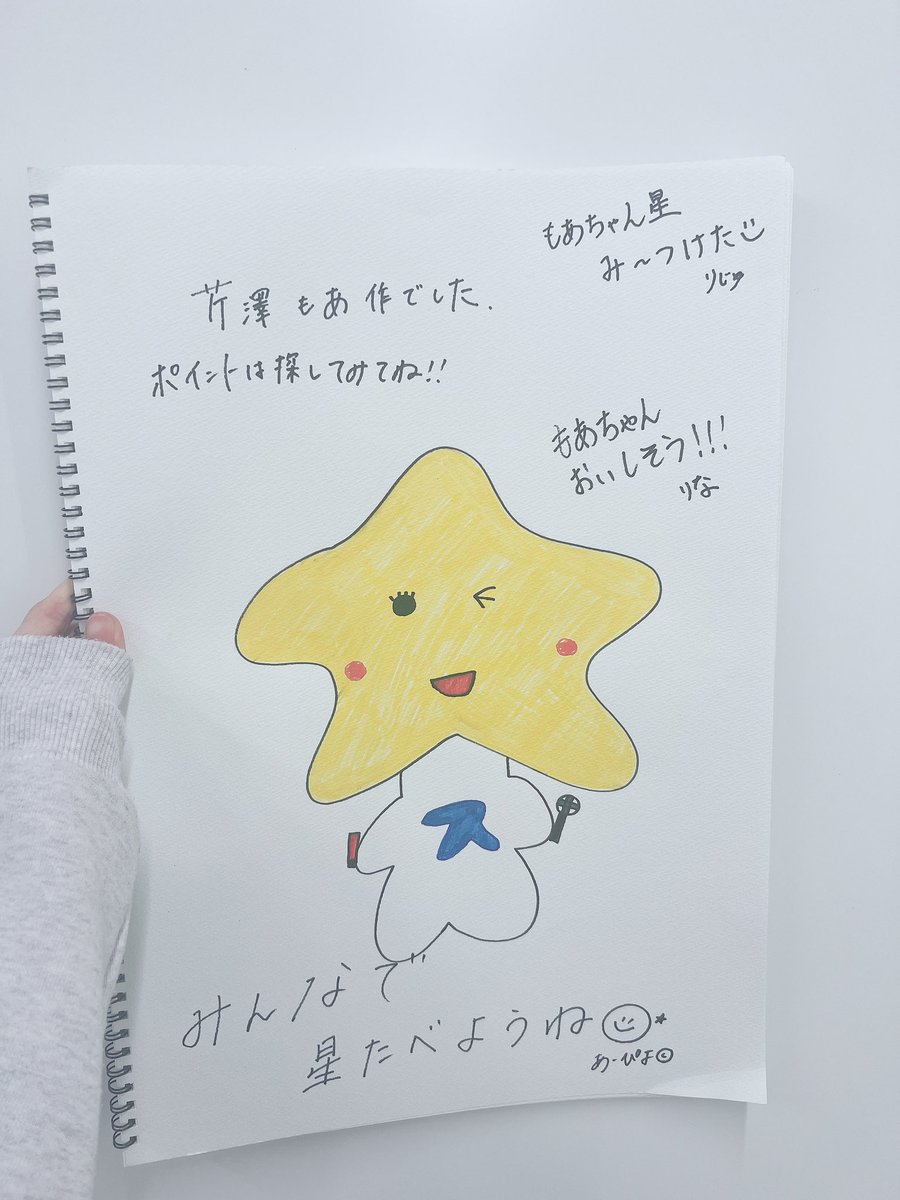 芹澤 もあ 作でした.
ポイントは探してみてね!!
もあちゃん星
み〜つけた
りじゅ
もあちゃん
おいしそう!!!
りな
ス
みんなで
星たべようね
あーぴよ©